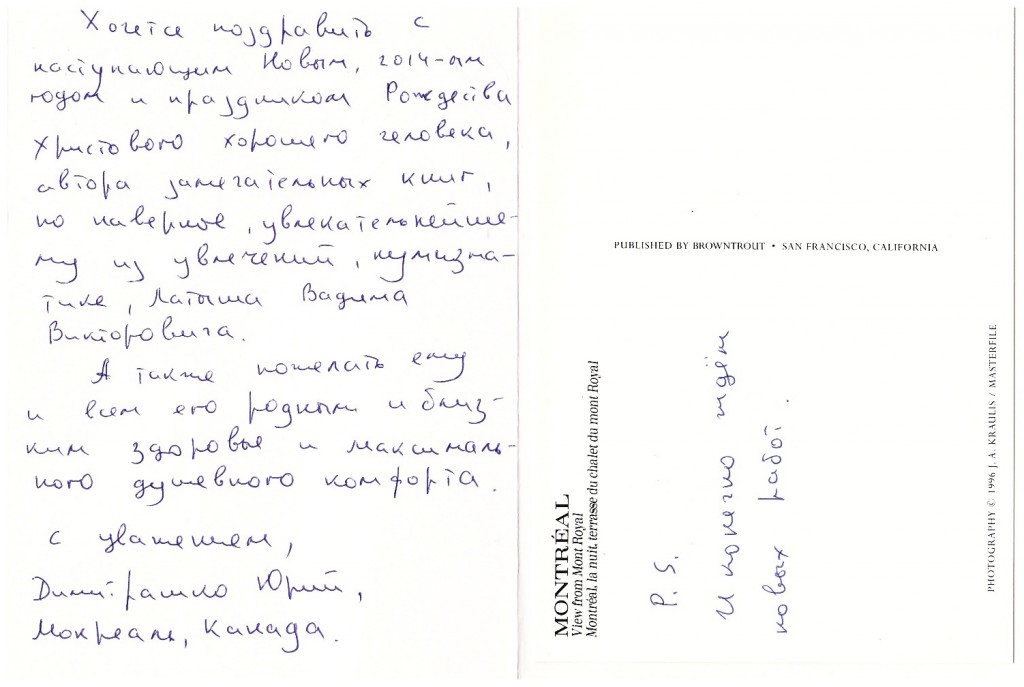 Хочется поздравить с
наступающим Новым, 2014-ым
годом и праздником Рождества
Христового хорошего человека,
автора замечательных книг,
по наверное, увлекательнейше-
му из увлечений, нумизма-
тике, Латыша Вадима
Викторовича.
А также пожелать ему
и всем его родным и близ-
ким здоровье и максималь-
ного душевного комфорта.
С уважением,
Димитрашко Юрий,
Монреаль, Канада.
PUBLISHED BY BROWNTROUT • SAN FRANCISCO, CALIFORNIA
MONTRÉAL
View from Mont Royal
Montréal, la nuit, terrasse du chalet du mont Royal
P. S.
И конечно ждём
новых работ.
PHOTOGRAPHY © 1996 J. A. KRAULIS / MASTERFILE